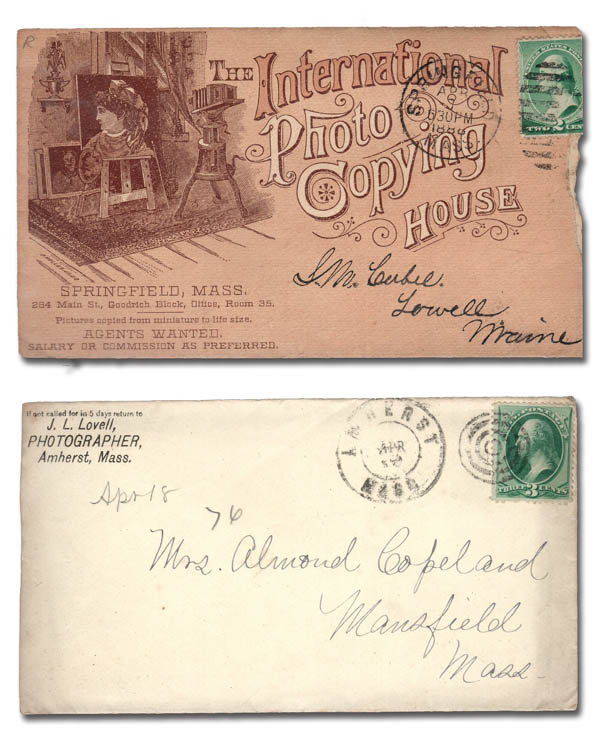 R
The International
Photo
Copying
House
SPRINGFIELD, MASS.
284 Main St., Goodrich Block, Office, Room 35.
Pictures copied from miniature to life size.
AGENTS WANTED.
SALARY OR COMMISSION AS PREFERRED.
SPRINGF
APR
6 30PM
MASS.
TWO CENT
Lowell
Maine
If not called for in 5 days return to
J. L. Lovell,
PHOTOGRAPHER,
Amherst, Mass.
AMHERST
APR
MASS
POSTAGE
THREE 3 CENTS
Apr 18
76
Mrs. Almond Copeland
Mansfield
Mass.